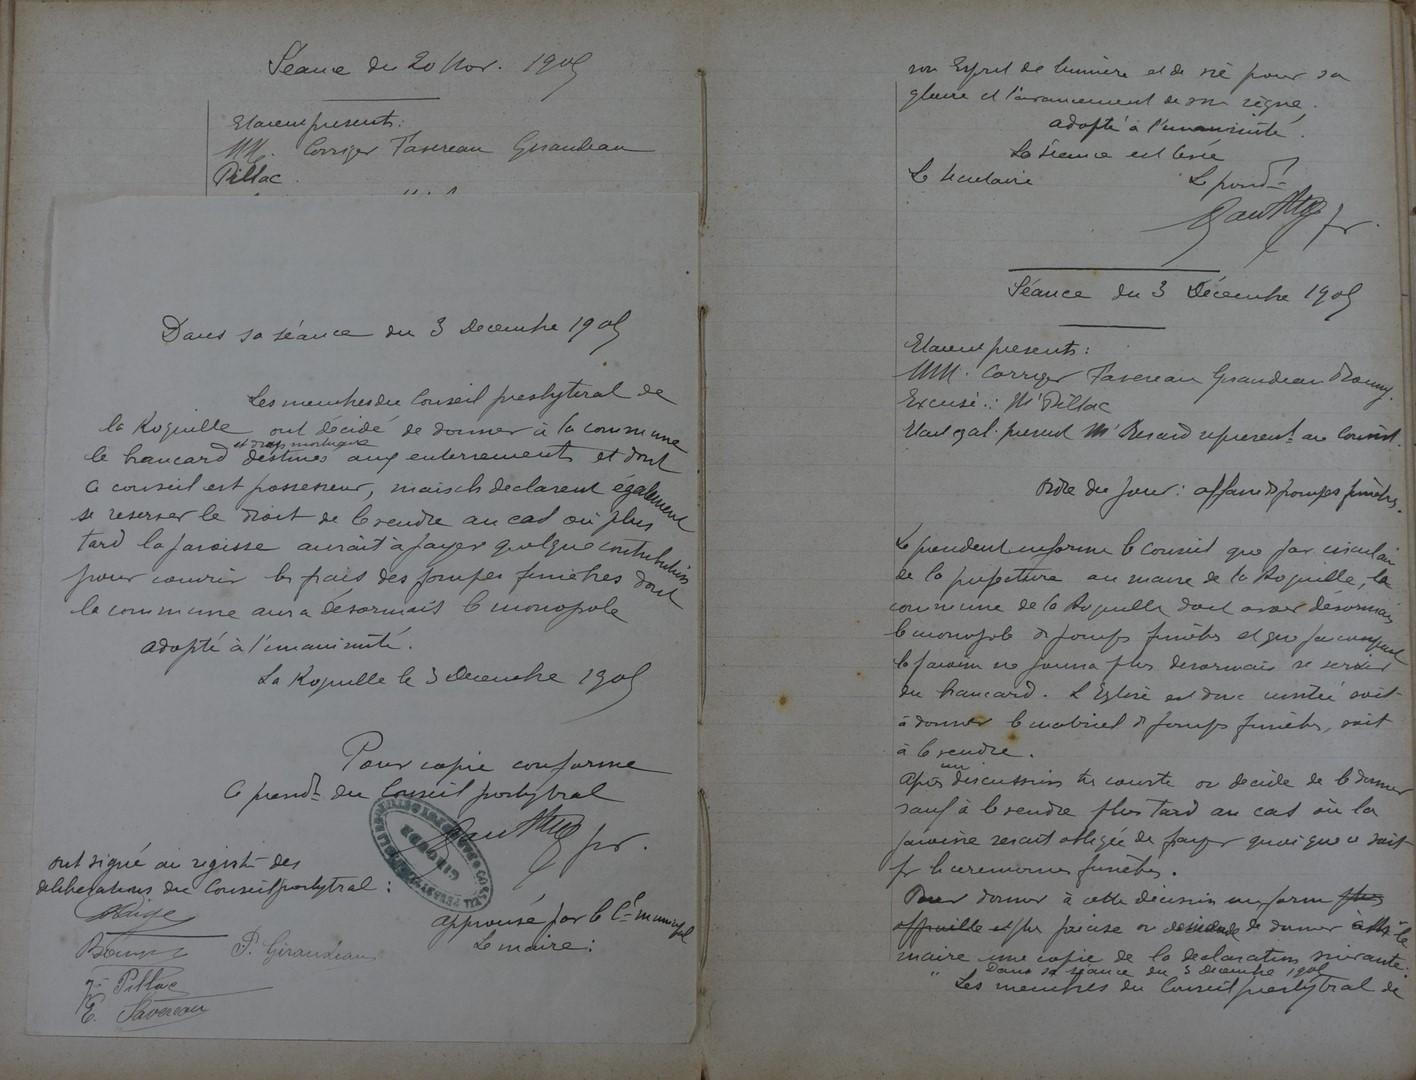 Séance du 20 Nov. 1905
Etaient presents:
MM. Corriger Favereau Giraudeau
Pillac
Dans sa séance du 3 Decembre 1905
Les membres du Conseil presbyteral de
la Roquille ont décidé de donner à la commune
le brancard et drap mortuaire destinés aux enterrements et dont
ce conseil est possesseur, mais ils declarent également
se reserver le droit de le vendre au cas où plus
tard la paroisse aurait à payer quelque contribution
pour couvrir les frais des pompes funèbres dont
la commune aura désormais le monopole
adopté à l'unanimité.
La Roquille le 3 Decembre 1905
Pour copie conforme
Le presidt du Conseil presbytral
Gauthey fr.
ont signé au registre des
déliberations du Conseil presbytral:
approuvé par le Cl municipal
Le maire:
P. Giraudeau
Pillac
E. Favereau
son Esprit de lumière et de vie pour sa
gloire et l'avancement de son règne.
adopté à l'unanimité.
La séance est levée
Le Secretaire Le presidt
Gauthey fr.
Séance du 3 Décembre 1905
Etaient presents:
MM. Corriger Favereau Giraudeau
Excusé: Mr Pillac
Etait egalt present Mr Besard represent au Consist.
Ordre du jour: affaire d pompes funèbres.
Le president informe le conseil que par circulaire
de la prefecture au maire de la Roquille, la
commune de la Roquille doit avoir désormais
le monopole d pompes funèbres et que par consequent
la paroisse ne pourra plus desormais se servir
du brancard. L'Eglise est donc invitée soit
à donner le materiel d pompes funèbres, soit
à le vendre.
Après une discussion très courte on decide de le donner
sauf à le vendre plus tard au cas où la
paroisse serait obligée de payer quoique ce soit
pr les ceremonies funèbres.
Pour donner à cette decision une forme plus
officielle et plus précise on demande de donner à M. le
maire une copie de la declaration suivante:
" Dans sa séance du 3 Decembre 1905
Les membres du Conseil presbytral de